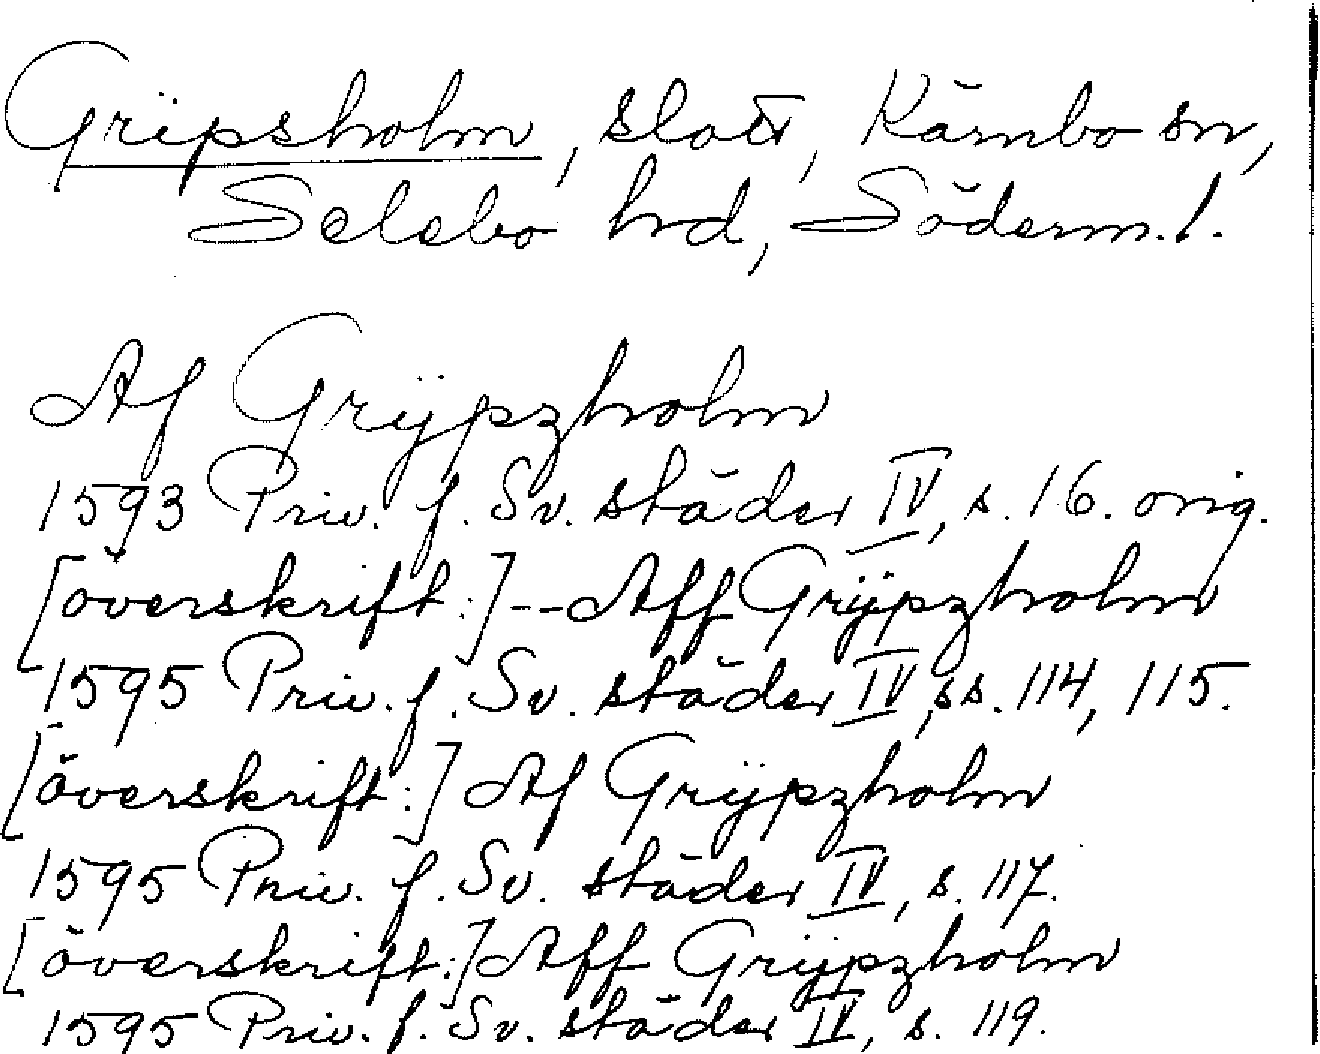 Gripsholm, slott, Kärnbo sn,
Selebo hrd, Söderm.l.
Af Grÿpzholm
1593 Priv. f. Sv. städer IV, s. 16. orig.
[överskrift:]--Aff Grÿpzholm
1595 Priv. f. Sv. städer IV, ss. 114, 115.
[överskrift:] Af Grÿpzholm
1595 Priv. f. Sv. städer IV, s. 117.
[överskrift:] Aff Grÿpzholm
1595 Priv. f. Sv. städer IV, s. 119.